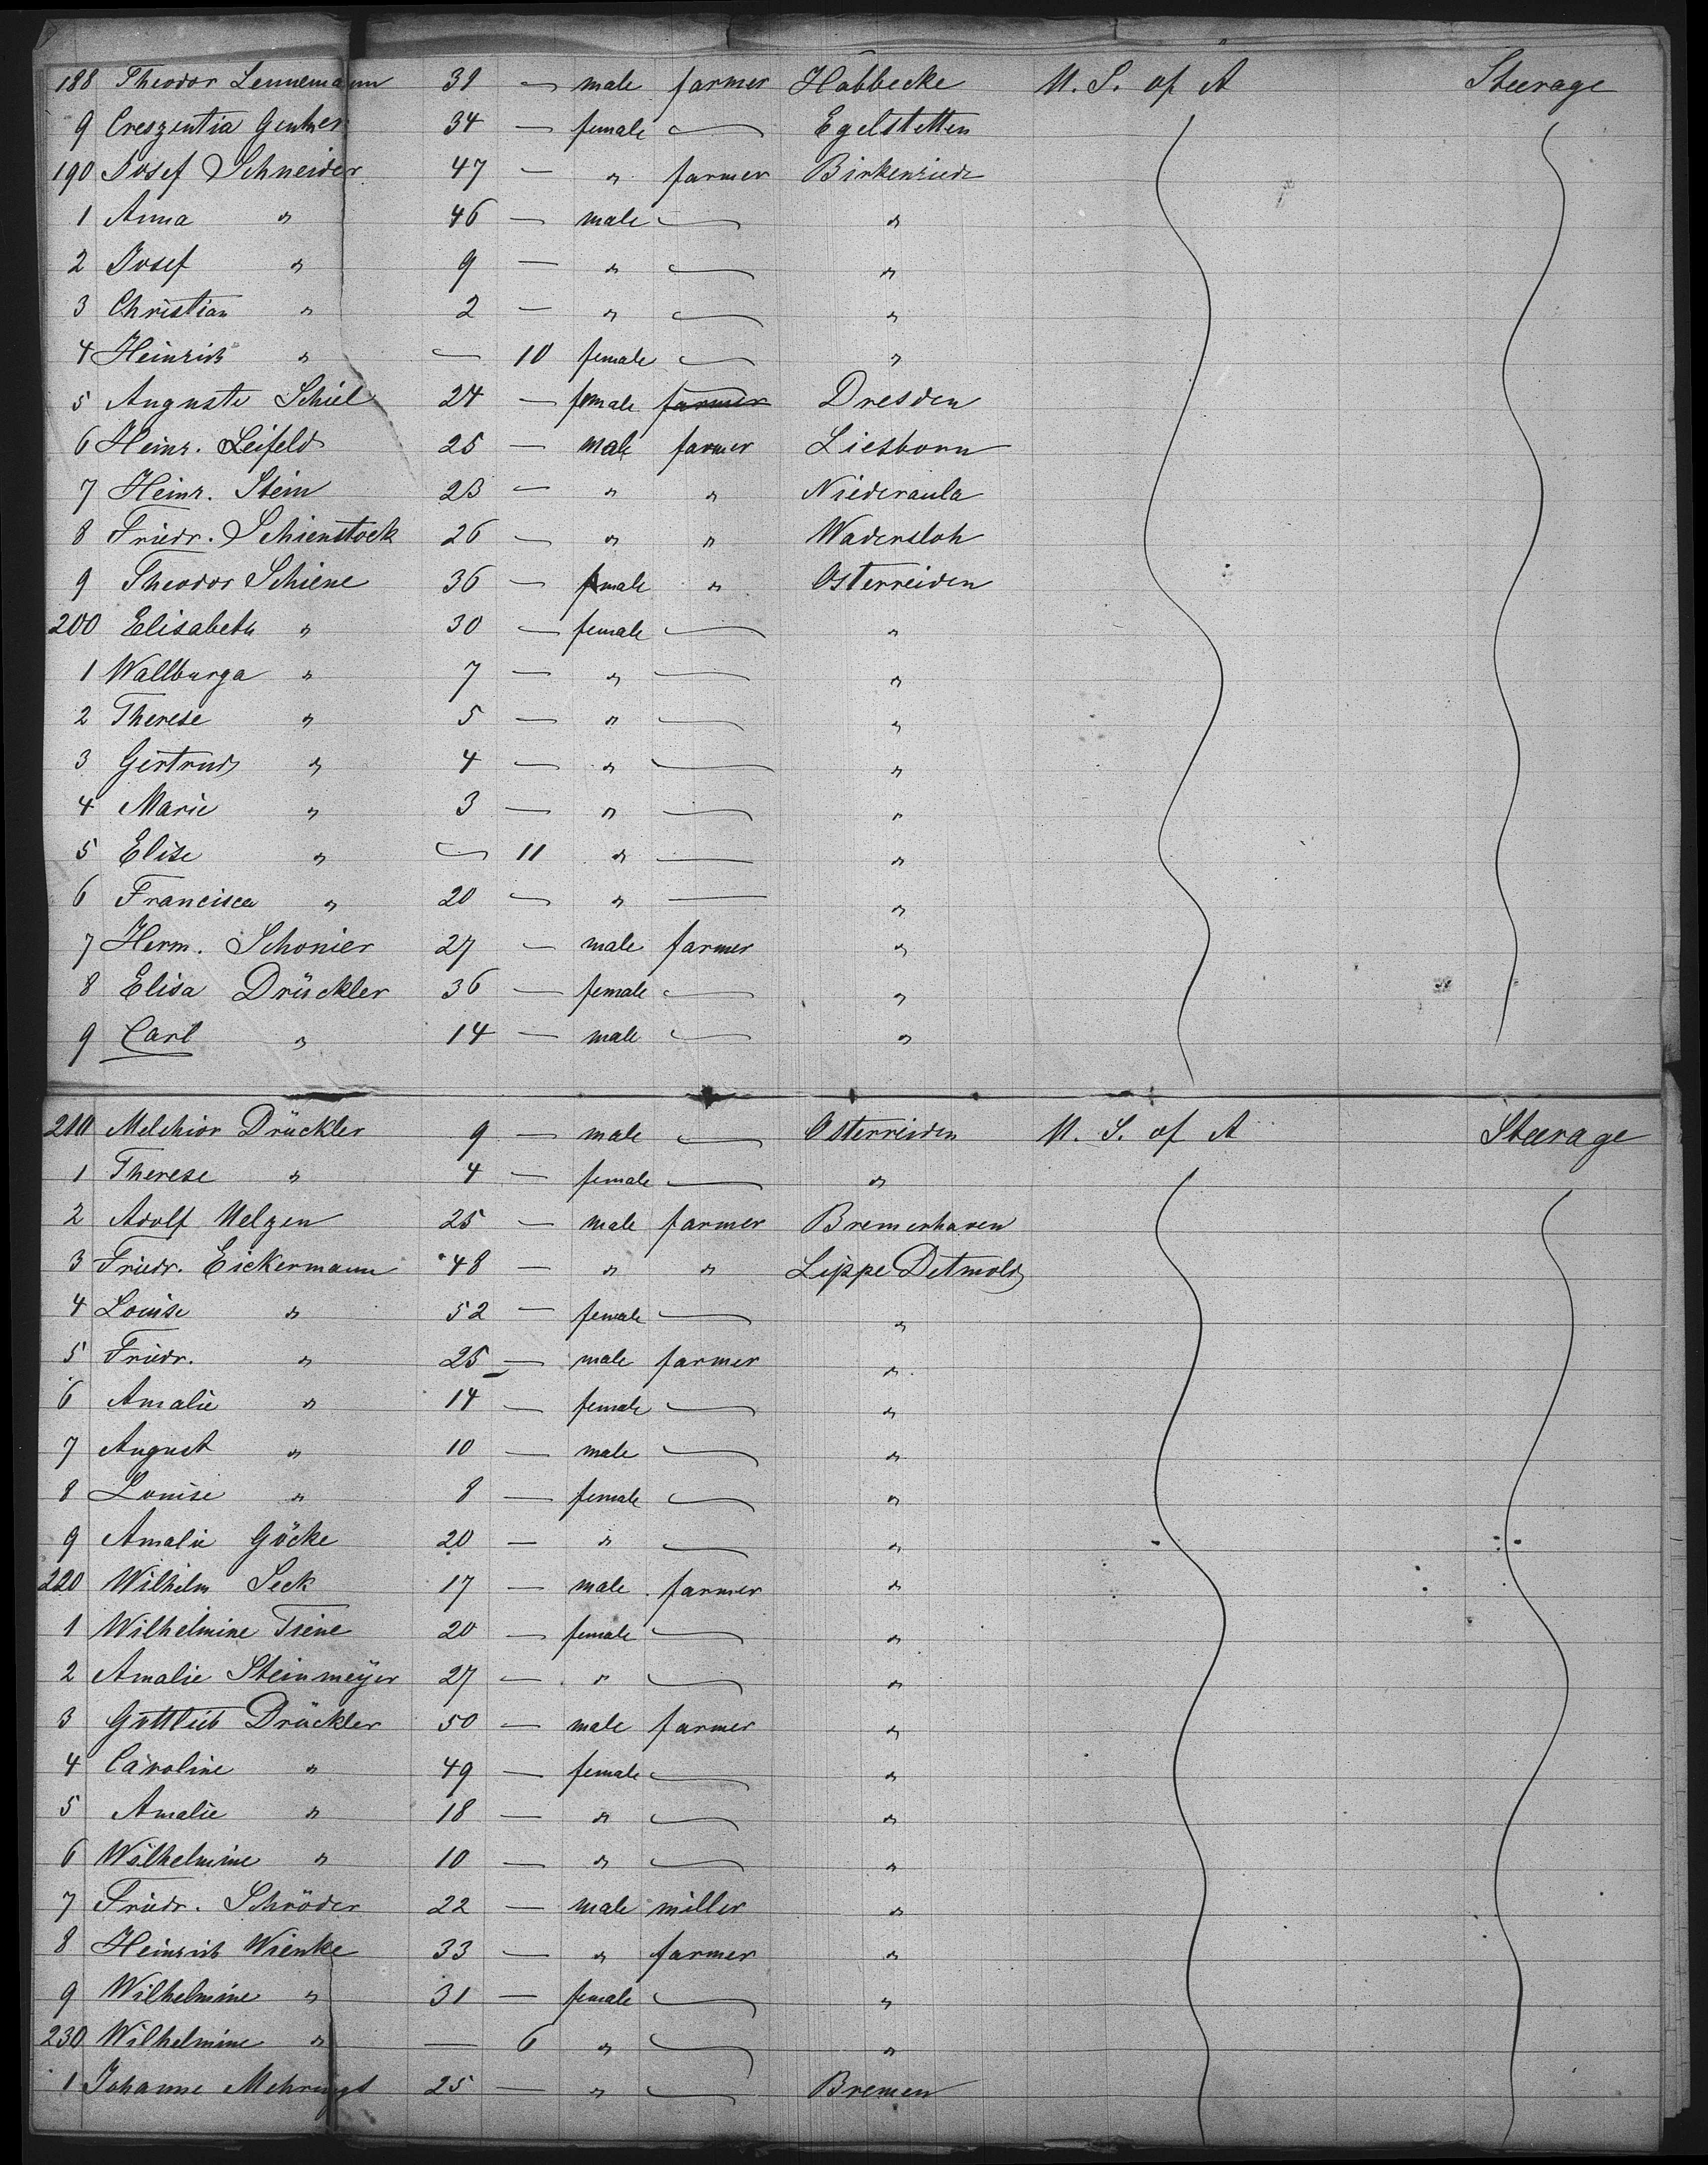 188 Theodor Lennemann 39 — male farmer Habbecke U. S. of A Steerage
9 Creszentia Gentner 34 — female — Egelstetten
190 Josef Schneider 47 — " farmer Birkenried
1 Anna " 46 — male — "
2 Josef " 9 — " — "
3 Christian " 2 — " — "
4 Heinrich " — 10 female — "
5 Auguste Schiel 24 — female farmer Dresden
6 Heinr. Leifeld 25 — male farmer Liesborn
7 Heinr. Stein 23 — " " Niederaula
8 Friedr. Schienstock 26 — " " Wadersloh
9 Theodor Schiene 36 — male " Osterreiden
200 Elisabeth " 30 — female — "
1 Wallburga " 7 — " — "
2 Therese " 5 — " — "
3 Gertrud " 4 — " — "
4 Marie " 3 — " — "
5 Elise " — 11 " — "
6 Francisca " 20 — " — "
7 Herm. Schonier 27 — male farmer "
8 Elisa Drückler 36 — female — "
9 Carl " 14 — male — "
210 Melchior Drückler 9 — male — Osterreiden U. S. of A Steerage
1 Therese " 4 — female — "
2 Adolf Uelzen 25 — male farmer Bremerhaven
3 Friedr. Eickermann 48 — " " Lippe Detmold
4 Louise " 52 — female — "
5 Friedr. " 25 — male farmer "
6 Amalie " 14 — female — "
7 August " 10 — male — "
8 Louise " 8 — female — "
9 Amalie Göcke 20 — " — "
220 Wilhelm Seek 17 — male farmer "
1 Wilhelmine Tsiene 20 — female — "
2 Amalie Steinmeÿer 27 — " — "
3 Gottlieb Drückler 50 — male farmer "
4 Caroline " 49 — female — "
5 Amalie " 18 — " — "
6 Wilhelmine " 10 — " — "
7 Friedr. Schröder 22 — male miller "
8 Heinrich Wienke 33 — " farmer "
9 Wilhelmine " 31 — female — "
230 Wilhelmine " — 6 " — "
1 Johanne 25 — " — Bremen